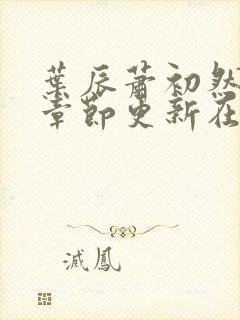 葉辰蕭初然
章節更新在
滅鳳